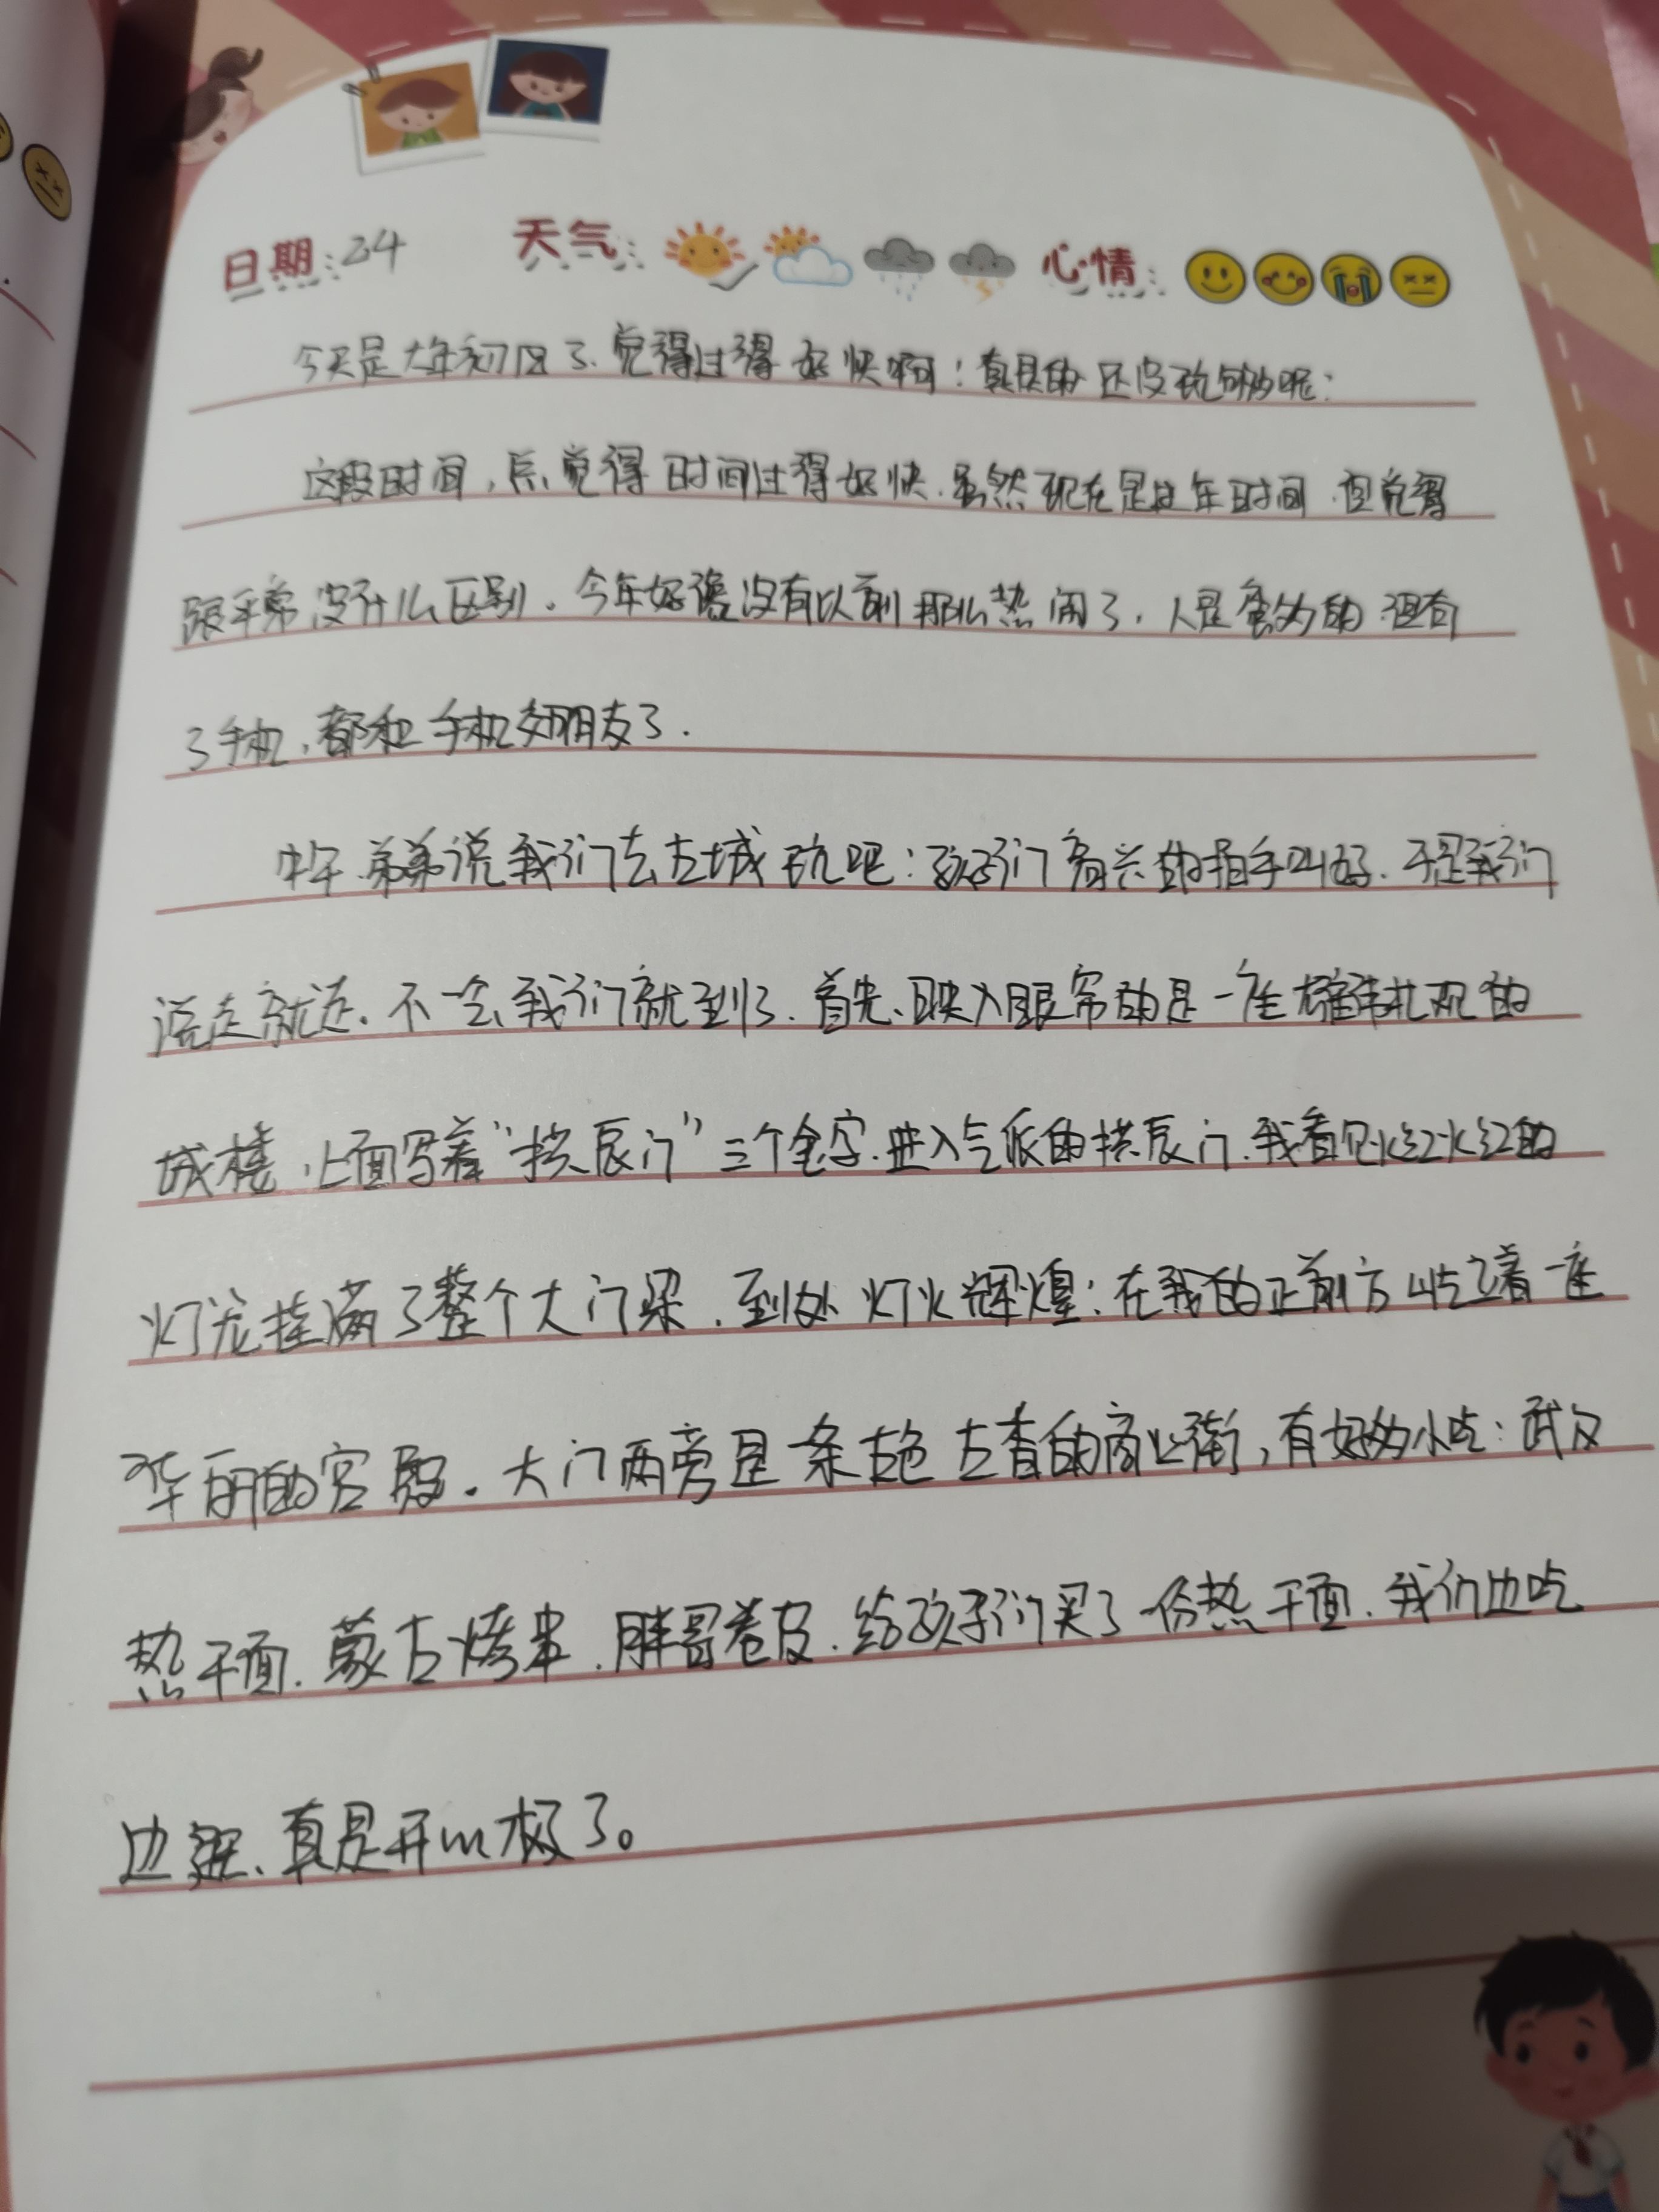 日期:24 天气: 心情:
今天是大年初四了、觉得过得好快啊!真是的还没玩够呢:
这段时间,总觉得时间过得好快.虽然现在是过年时间.但觉得
跟平常没什么区别.今年好像没有以前那么热闹了.人是蛮多的.但有
了手机,都和手机交朋友了.
中午.弟弟说我们去古城玩吧:孩子们高兴的拍手叫好.于是我们
说走就走.不一会,我们就到了.首先、映入眼帘的是一座雄伟壮观的
城楼,上面写着“拱辰门”三个金字.进入气派的拱辰门.我看见火红火红的
灯笼挂满了整个大门梁.到处灯火辉煌:在我的正前方屹立着一座
华丽的宫殿.大门两旁是一条古色古香的商业街,有好多小吃:武汉
热干面.蒙古烤串.胖哥卷皮.给孩子们买了一份热干面.我们边吃
边逛、真是开心极了。